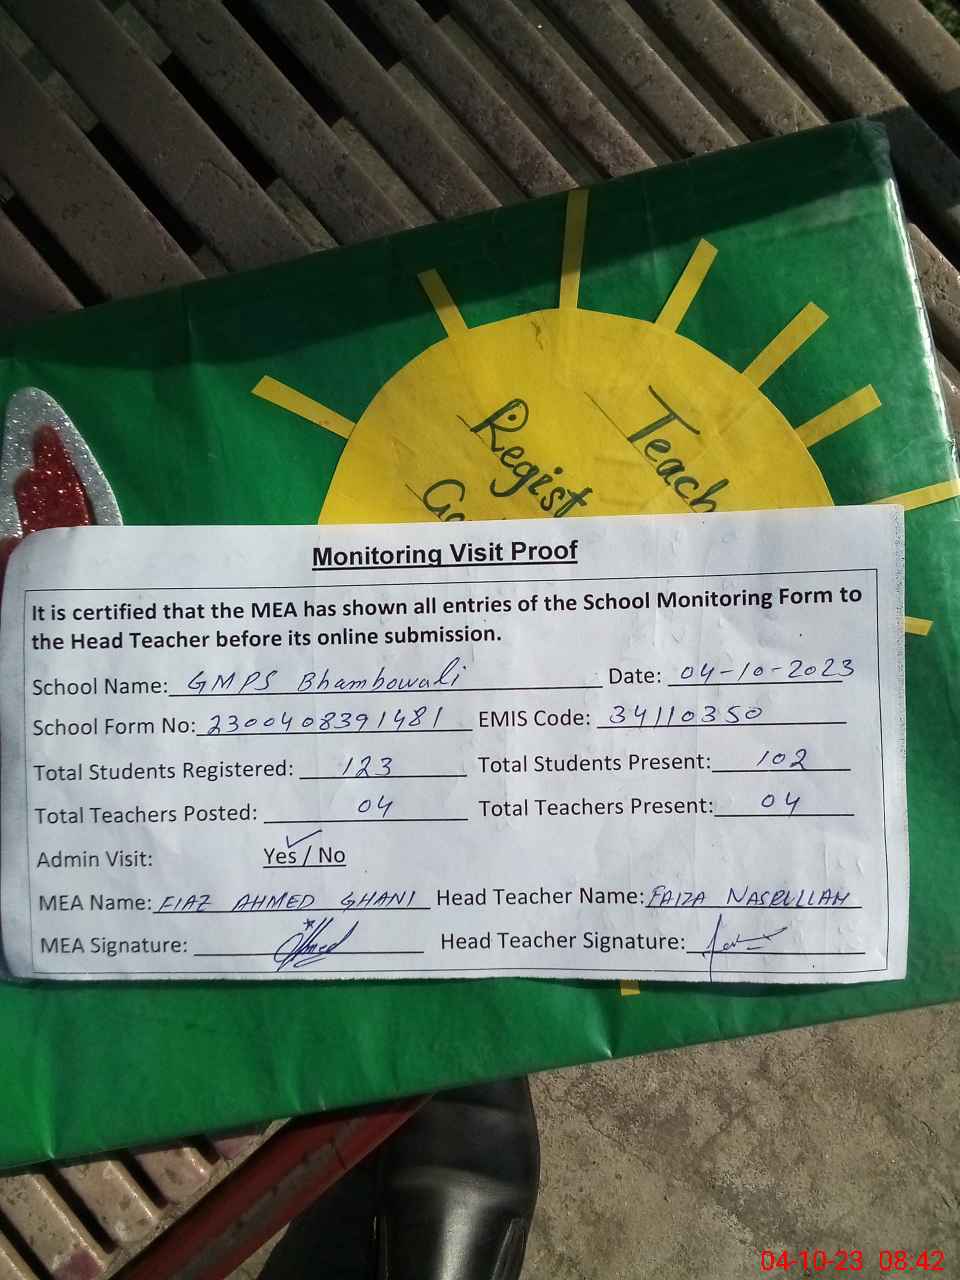 Teach
Regist
Monitoring Visit Proof
It is certified that the MEA has shown all entries of the School Monitoring Form to
the Head Teacher before its online submission.
School Name: GMPS Bhambowali Date: 04-10-2023
School Form No: 2300408391481 EMIS Code: 34110350
Total Students Registered: 123 Total Students Present: 102
Total Teachers Posted: 04 Total Teachers Present: 04
Admin Visit: Yes / No
MEA Name: FIAZ AHMED GHANI Head Teacher Name: FAIZA NASRULLAH
MEA Signature: Head Teacher Signature:
04-10-23 08:42